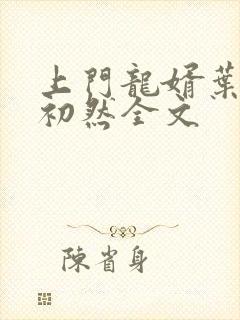 上門龍婿葉
初然全文
陳省身